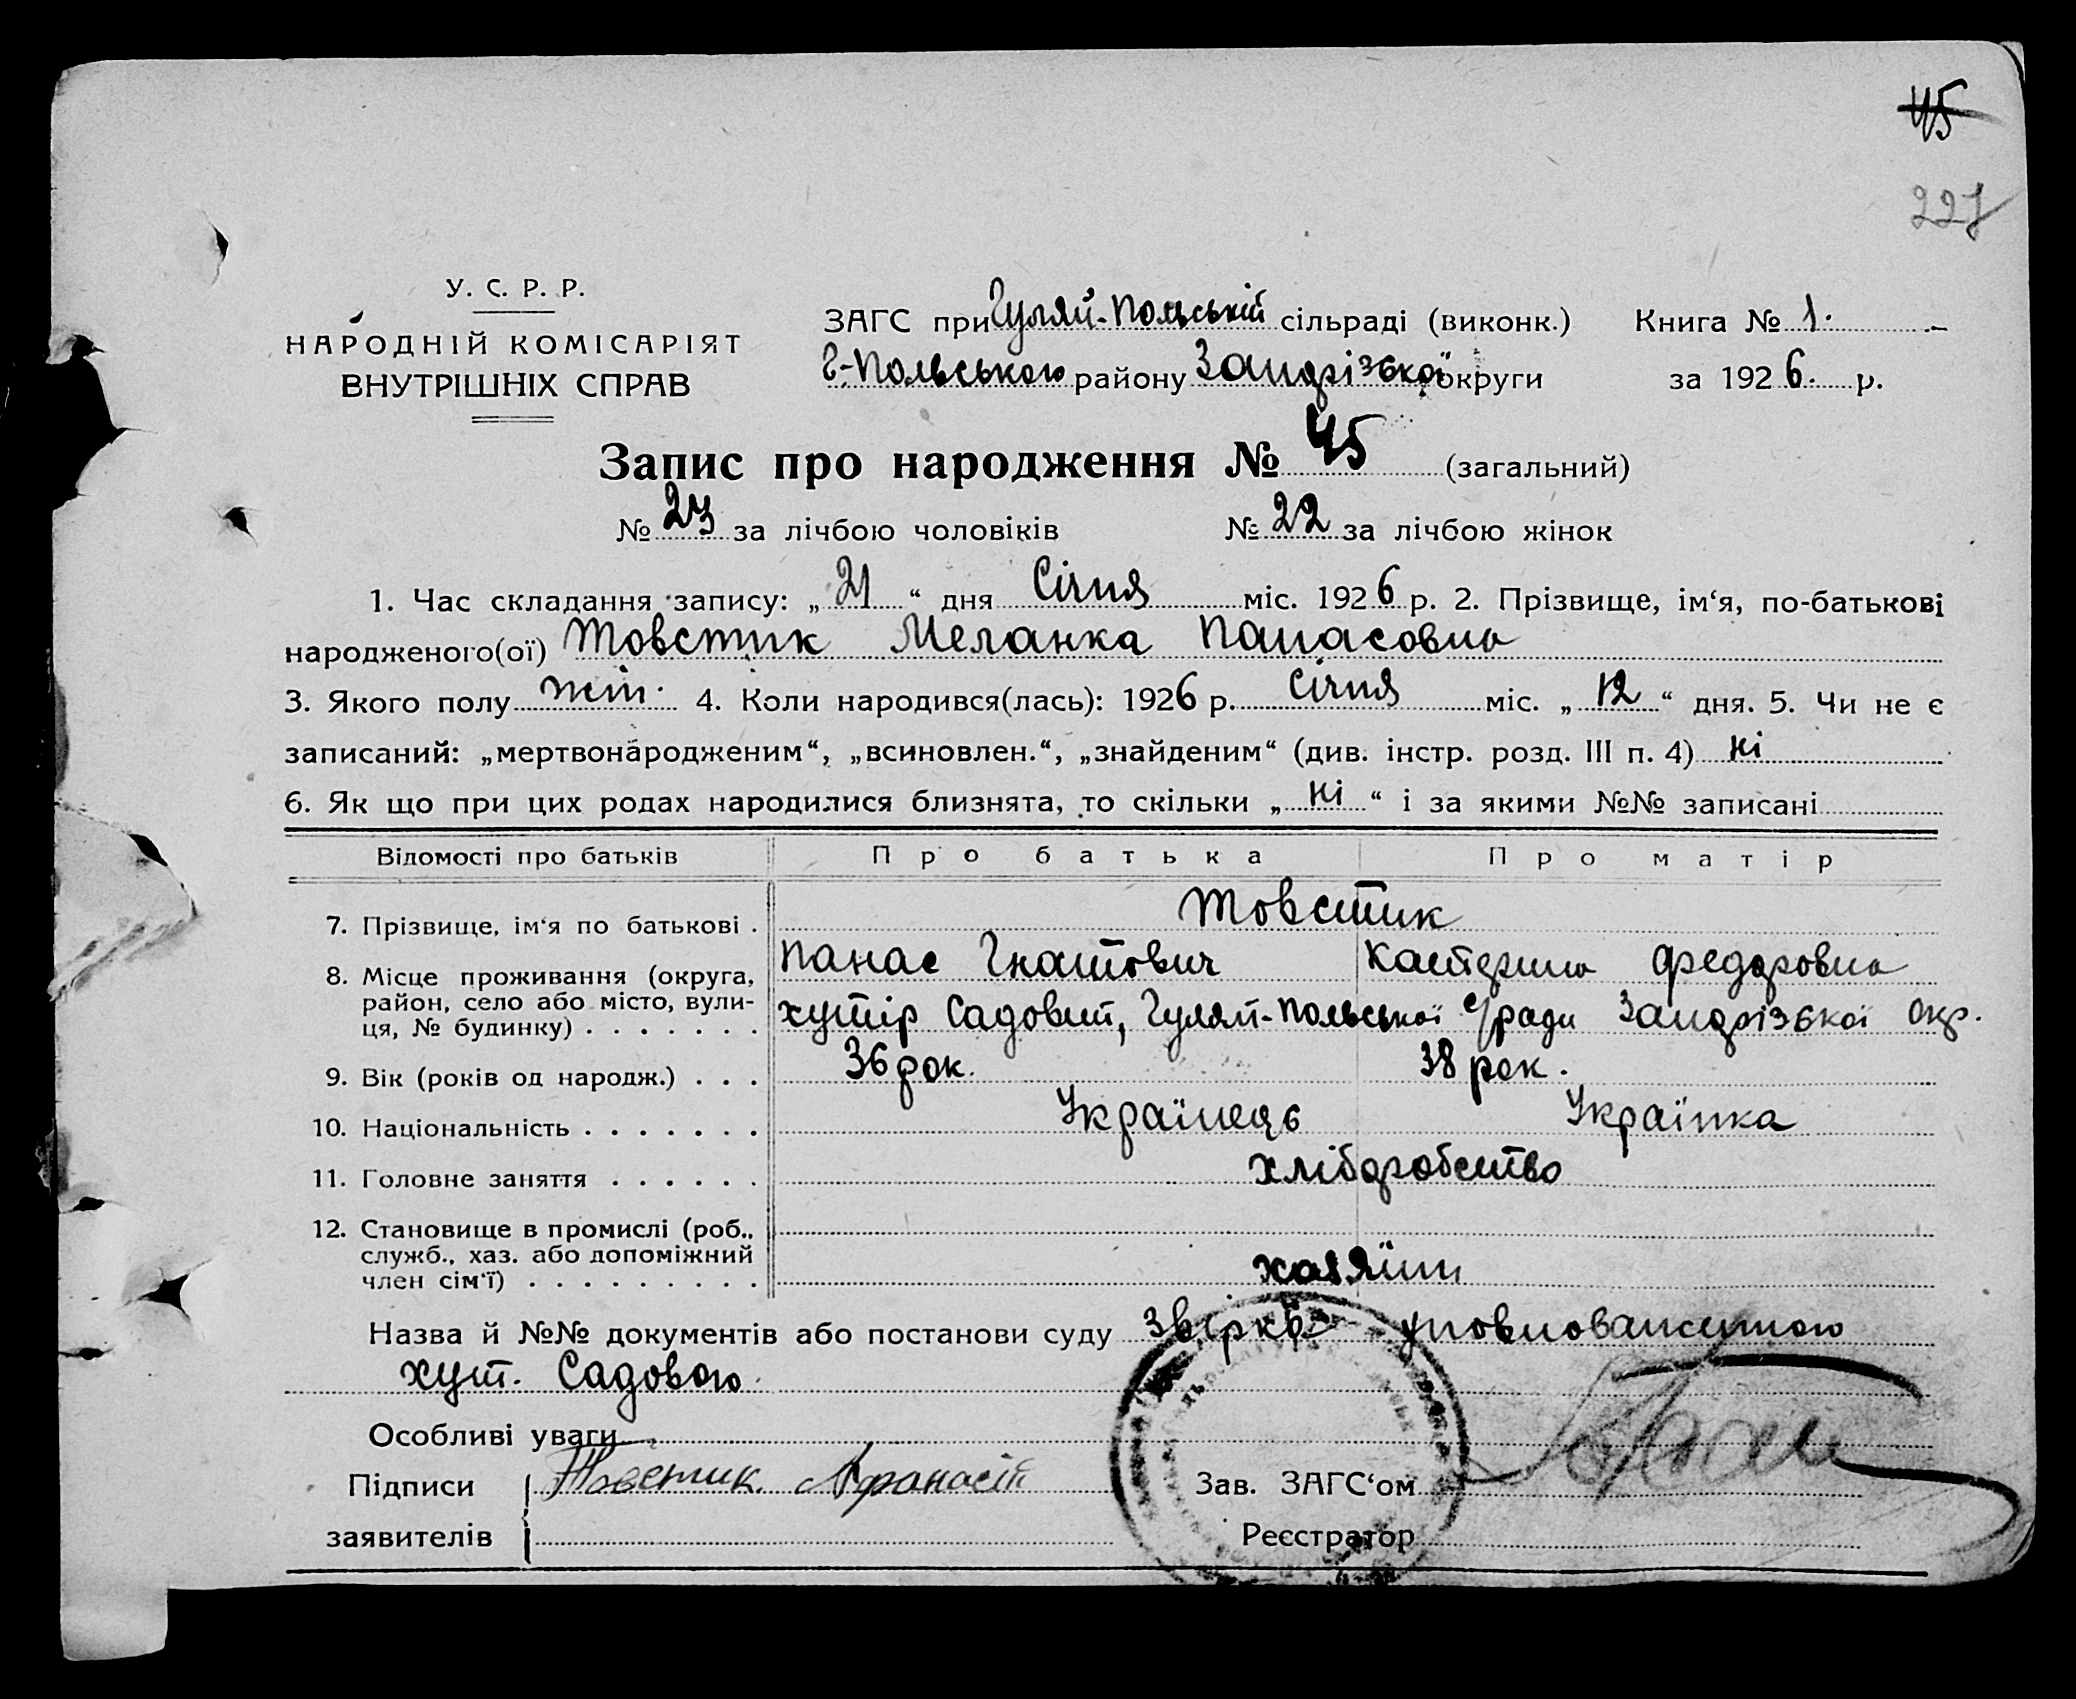 45
227
У. С. Р. Р.
НАРОДНІЙ КОМІСАРІЯТ
ВНУТРІШНІХ СПРАВ
ЗАГС при Гуляй-Польській сільраді (виконк.) Книга № 1.
Г-Польського району Запорізької округи за 1926. р.
Запис про народження № 45 (загальний)
№ 23 за лічбою чоловіків № 22 за лічбою жінок
1. Час складання запису: „ 21 “ дня Січня міс. 1926 р. 2. Прізвище, ім‘я, по-батькові
народженого(ої) Товстик Меланка Панасовна
3. Якого полу жін. 4. Коли народився(лась): 1926 р. Січня міс. „ 12 “ дня. 5. Чи не є
записаний: „мертвонародженим“, „всиновлен.“, „знайденим“ (див. інстр. розд. III п. 4) ні
6. Як що при цих родах народилися близнята, то скільки „ ні “ і за якими №№ записані
Відомості про батьків Про батька Про матір
7. Прізвище, ім‘я по батькові . Товстик
Панас Гнатович Катерина Федоровна
8. Місце проживання (округа, район, село або місто, вули-ця, № будинку) . . . . . . .
хутір Садовий, Гуляй-Польської с/ради Запорізької окр.
9. Вік (років од народж.) . . . 36 рок. 38 рок.
10. Національність . . . . . . . Українець Українка
11. Головне заняття . . . . . . хліборобство
12. Становище в промислі (роб., служб., хаз. або допоміжний член сім‘ї) . . . . . . . . .
хазяїни
Назва й №№ документів або постанови суду звірка уповноваженого
хут. Садового.
Особливі уваги
Підписи Товстик Афанасій Зав. ЗАГС‘ом
заявителів Реєстратор